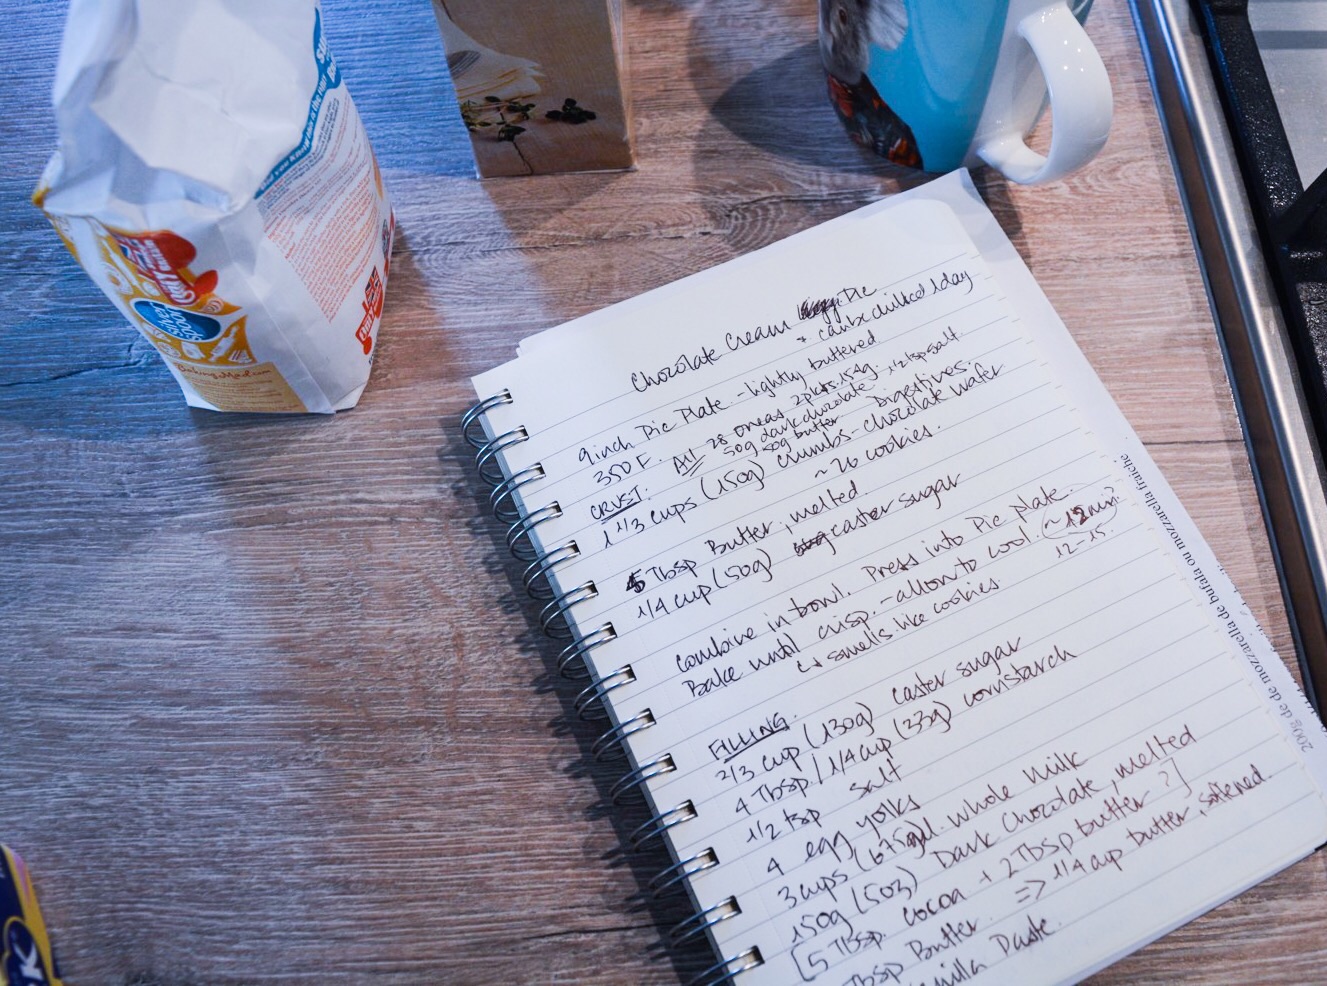 Chocolate Cream Pie
9inch Pie Plate - lightly buttered
+ can be chilled 1 day
350 F.
Alt 28 oreos 2 pkts. 154g. 1/2 tsp salt
50g dark chocolate
50g butter
Digestives.
CRUST:
1 1/3 cups (150g) crumbs - chocolate wafer
~ 26 cookies.
5 Tbsp Butter, melted.
1/4 cup (50g) caster sugar
Combine in bowl. Press into Pie plate.
Bake until crisp. - allow to cool. (~12 min.)
12-15.
↳ smells like cookies
FILLING.
2/3 cup (130g) caster sugar
4 Tbsp / 1/4 cup (33g) cornstarch
1/2 tsp salt
4 egg yolks
3 cups (675ml. whole milk
150g (5oz) Dark Chocolate, melted
[5 Tbsp. cocoa + 2 Tbsp butter ?]
Tbsp Butter. => 1/4 cup butter, softened.
Vanilla Paste.
200g de mozzarella de bufala ou mozzarella fraîche
Silver Spoon